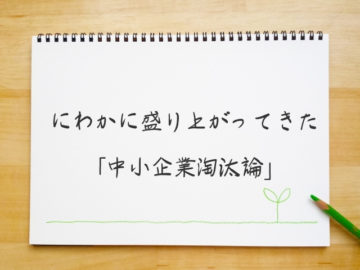 にわかに盛り上がってきた
「中小企業淘汰論」